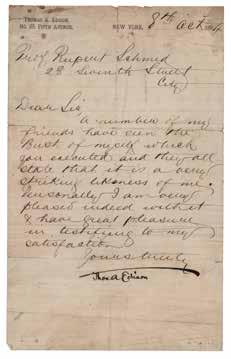 THOMAS A. EDISON,
No. 65 FIFTH AVENUE.
NEW YORK, 8th Oct
Prof Rupert Schmid
28 Seventh Street
City
Dear Sir
A number of my
friends have seen the
Bust of myself which
you executed and they all
state that it is a very
striking likeness of me.
Personally I am very
pleased indeed with it
& have great pleasure
in testifying to my
satisfaction
Yours truly
Thos A Edison